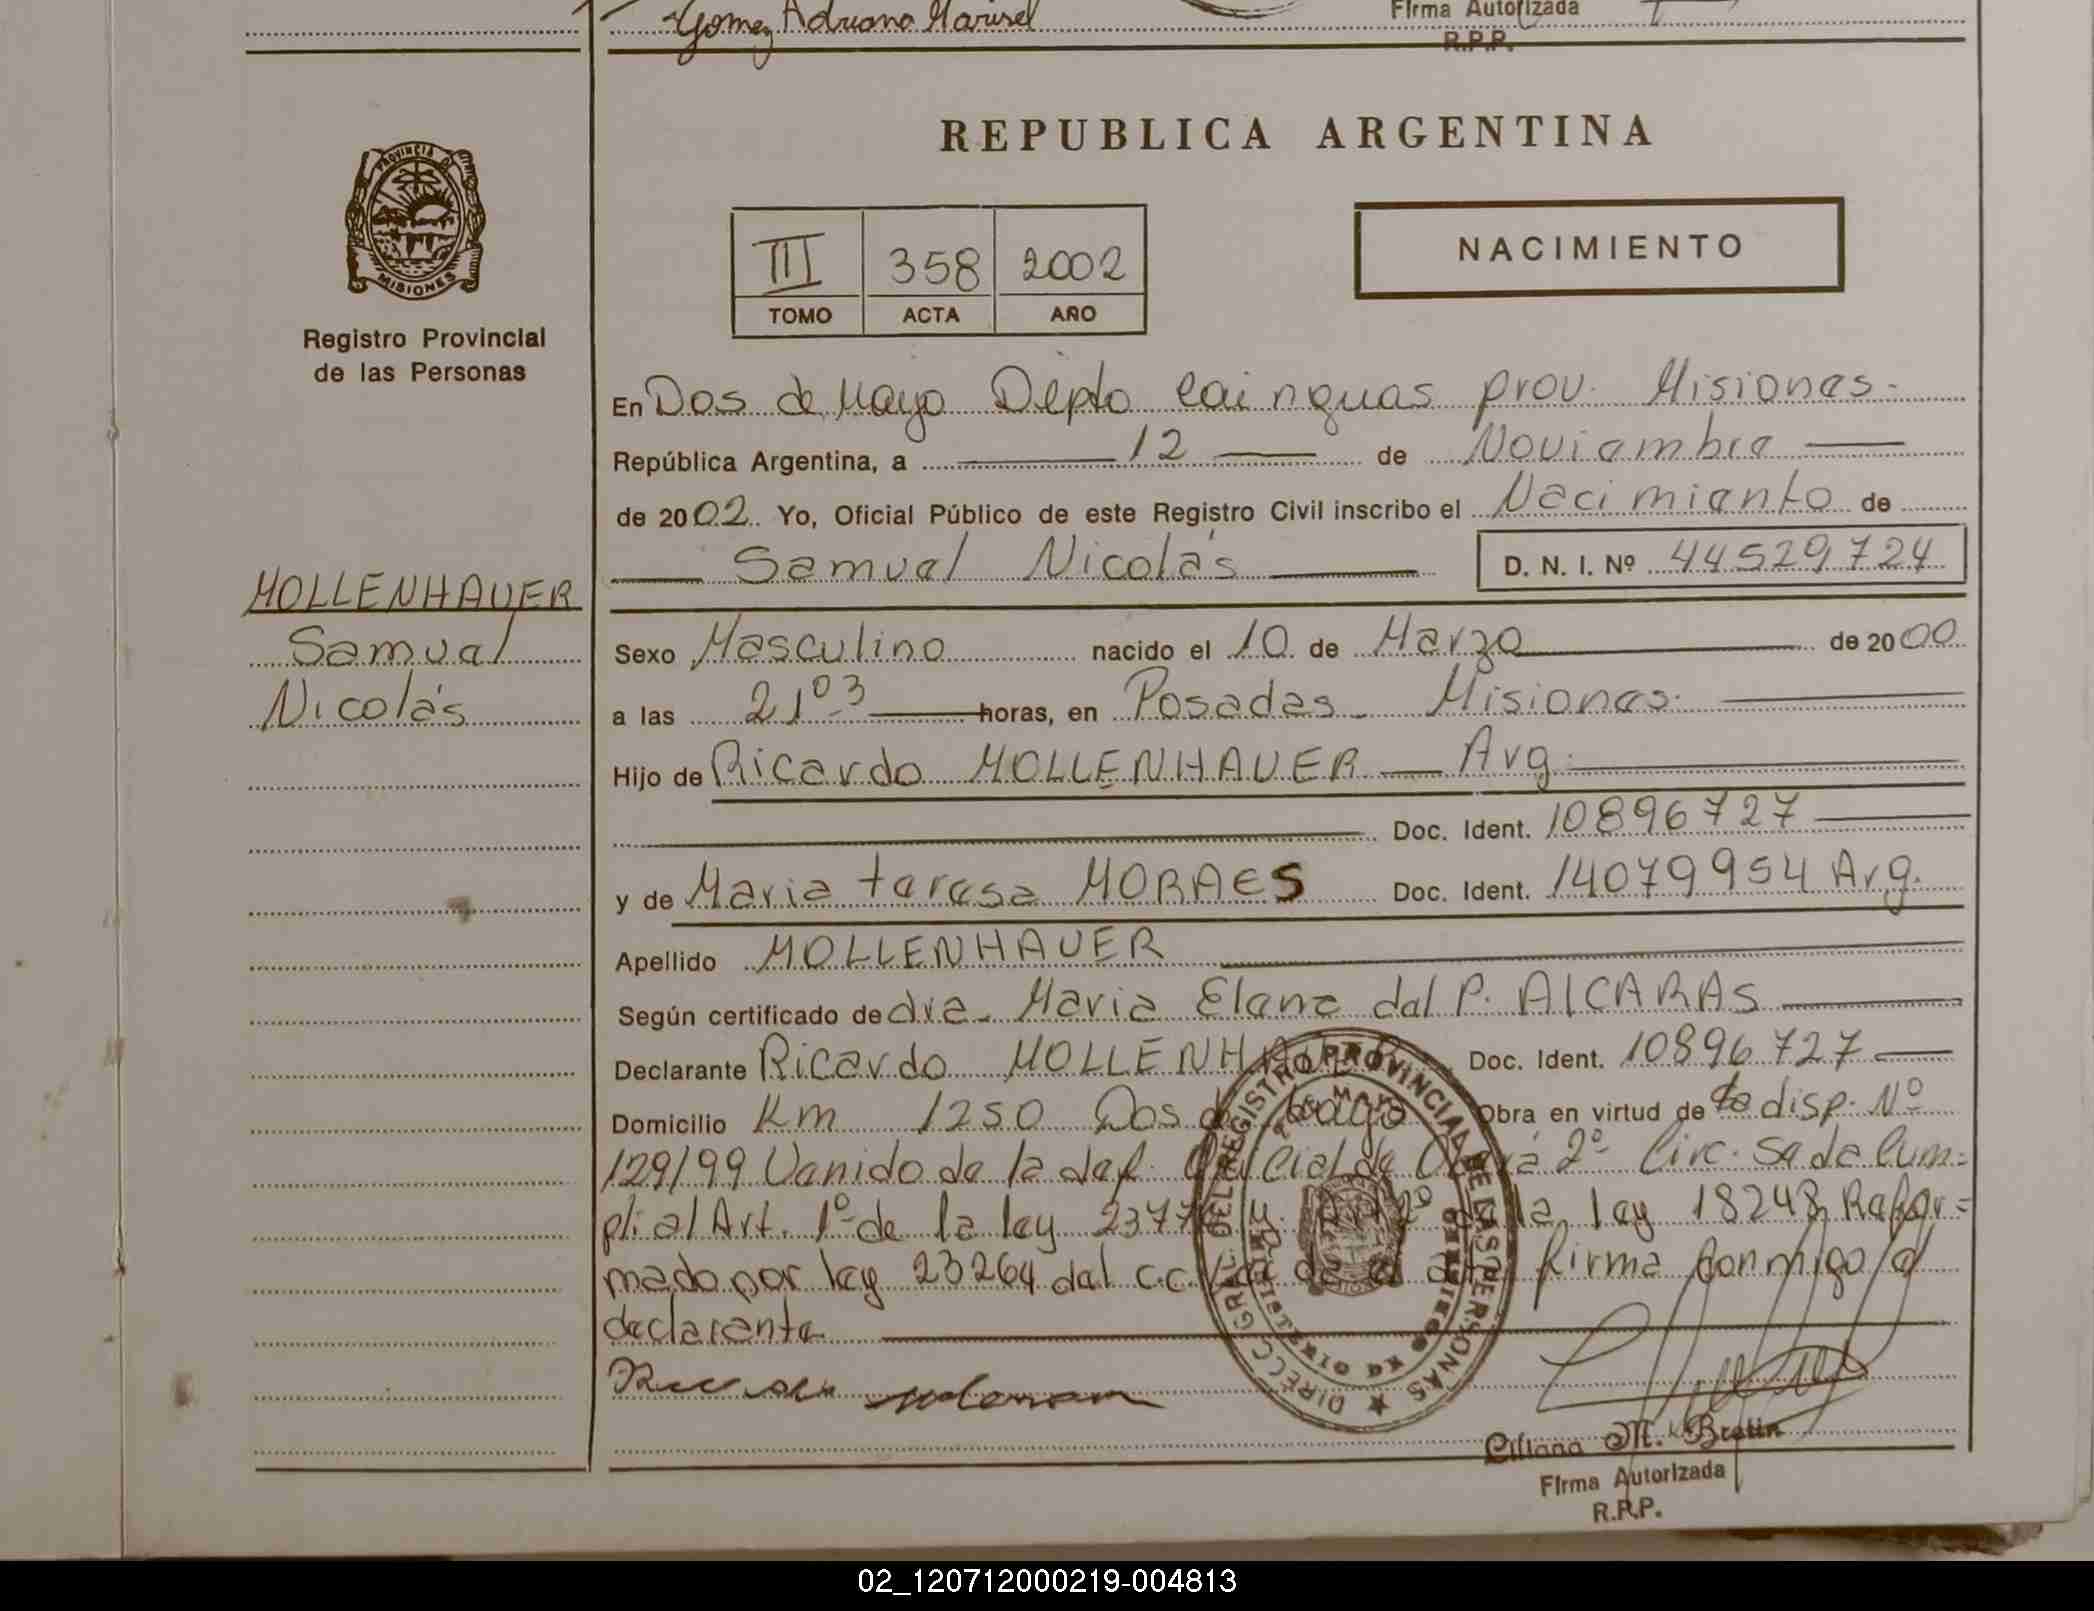 Gomez Adriana Marisel
Firma Autorizada
R.P.P.
REPUBLICA ARGENTINA
PROVINCIA DE
MISIONES
Registro Provincial
de las Personas
III 358 2002
TOMO ACTA AÑO
NACIMIENTO
En Dos de Mayo Depto Cainguas prov. Misiones.
República Argentina, a 12 de Noviembre
de 2002. Yo, Oficial Público de este Registro Civil inscribo el Nacimiento de
Samuel Nicolás D. N. I. Nº 44529724
MOLLENHAUER
Samuel
Nicolás
Sexo Masculino nacido el 10 de Marzo de 2000
a las 21 03 horas, en Posadas Misiones.
Hijo de Ricardo MOLLENHAUER Arg.
Doc. Ident. 10896727
y de Maria teresa MORAES Doc. Ident. 14079954 Arg.
Apellido MOLLENHAUER
Según certificado de dra. Maria Elena del P. AlCARAS
Declarante Ricardo MOLLENHAUER Doc. Ident. 10896727
Domicilio Km 1250 Dos de Mayo Obra en virtud de la disp. Nº
129/99 Venido de la def. Oficial de Oberá 2º Circ. se da Cum=
pli al Art. 1º de la ley 2377 y 2º de la ley 18248 Refor=
mado por ley 23264 del c.c. firma conmigo el
declarante
DIRECC. GRAL. DEL REGISTRO PROVINCIAL DE LAS PERSONAS
Firma Autorizada
R.P.P.
02_120712000219-004813